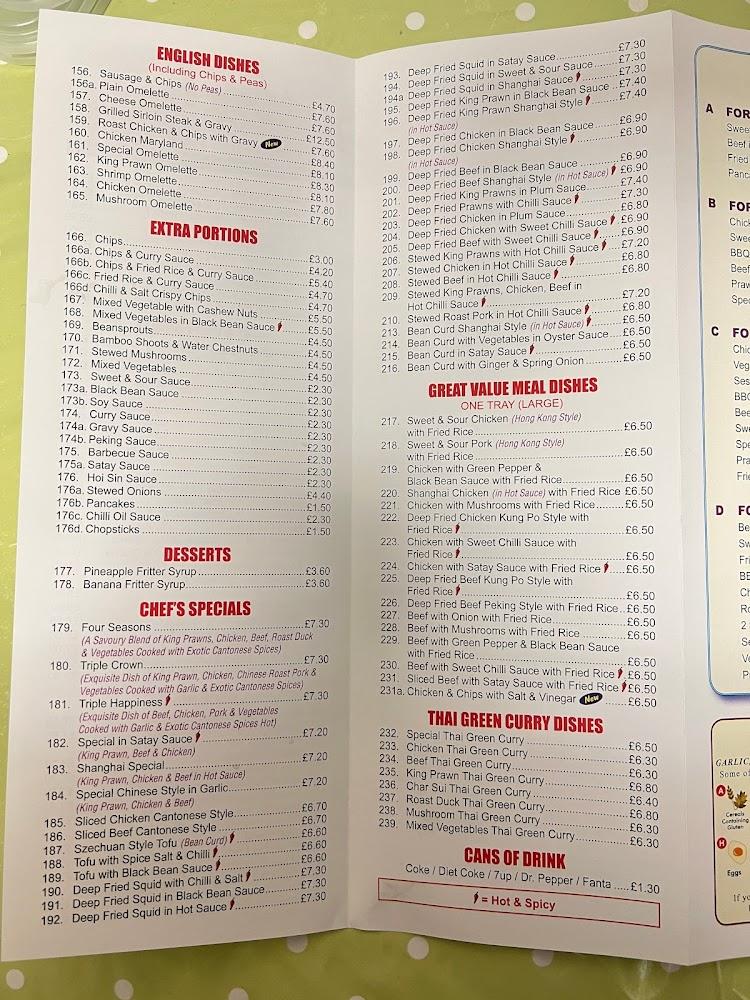 ENGLISH DISHES
(Including Chips & Peas)
156. Sausage & Chips (No Peas) £4.70
156a. Plain Omelette £7.60
157. Cheese Omelette £7.60
158. Grilled Sirloin Steak & Gravy £12.50
159. Roast Chicken & Chips with Gravy New £7.60
160. Chicken Maryland £8.40
161. Special Omelette £8.10
162. King Prawn Omelette £8.30
163. Shrimp Omelette £8.10
164. Chicken Omelette £7.80
165. Mushroom Omelette £7.60
EXTRA PORTIONS
166. Chips £3.00
166a. Chips & Curry Sauce £4.20
166b. Chips & Fried Rice & Curry Sauce £5.40
166c. Fried Rice & Curry Sauce £4.70
166d. Chilli & Salt Crispy Chips £4.70
167. Mixed Vegetable with Cashew Nuts £5.50
168. Mixed Vegetables in Black Bean Sauce £5.50
169. Beansprouts £4.50
170. Bamboo Shoots & Water Chestnuts £4.50
171. Stewed Mushrooms £4.50
172. Mixed Vegetables £4.50
173. Sweet & Sour Sauce £2.30
173a. Black Bean Sauce £2.30
173b. Soy Sauce £2.30
174. Curry Sauce £2.30
174a. Gravy Sauce £2.30
174b. Peking Sauce £2.30
175. Barbecue Sauce £2.30
175a. Satay Sauce £2.30
176. Hoi Sin Sauce £2.30
176a. Stewed Onions £4.40
176b. Pancakes £1.50
176c. Chilli Oil Sauce £2.30
176d. Chopsticks £1.50
DESSERTS
177. Pineapple Fritter Syrup £3.60
178. Banana Fritter Syrup £3.60
CHEF'S SPECIALS
179. Four Seasons £7.30
(A Savoury Blend of King Prawns, Chicken, Beef, Roast Duck
& Vegetables Cooked with Exotic Cantonese Spices)
180. Triple Crown £7.30
(Exquisite Dish of King Prawn, Chicken, Chinese Roast Pork &
Vegetables Cooked with Garlic & Exotic Cantonese Spices)
181. Triple Happiness £7.30
(Exquisite Dish of Beef, Chicken, Pork & Vegetables
Cooked with Garlic & Exotic Cantonese Spices Hot)
182. Special in Satay Sauce £7.20
(King Prawn, Beef & Chicken)
183. Shanghai Special £7.20
(King Prawn, Chicken & Beef in Hot Sauce)
184. Special Chinese Style in Garlic £7.20
(King Prawn, Chicken & Beef)
185. Sliced Chicken Cantonese Style £6.70
186. Sliced Beef Cantonese Style £6.70
187. Szechuan Style Tofu (Bean Curd) £6.60
188. Tofu with Spice Salt & Chilli £6.60
189. Tofu with Black Bean Sauce £6.60
190. Deep Fried Squid with Chilli & Salt £7.30
191. Deep Fried Squid in Black Bean Sauce £7.30
192. Deep Fried Squid in Hot Sauce £7.30
193. Deep Fried Squid in Satay Sauce £7.30
194. Deep Fried Squid in Sweet & Sour Sauce £7.30
194a Deep Fried Squid in Shanghai Sauce £7.30
195. Deep Fried King Prawn in Black Bean Sauce £7.40
196. Deep Fried King Prawn Shanghai Style £7.40
(in Hot Sauce)
197. Deep Fried Chicken in Black Bean Sauce £6.90
198. Deep Fried Chicken Shanghai Style £6.90
(in Hot Sauce)
199. Deep Fried Beef in Black Bean Sauce £6.90
200. Deep Fried Beef Shanghai Style (in Hot Sauce) £6.90
201. Deep Fried King Prawns in Plum Sauce £7.40
202. Deep Fried Prawns with Chilli Sauce £7.30
203. Deep Fried Chicken in Plum Sauce £6.80
204. Deep Fried Chicken with Sweet Chilli Sauce £6.90
205. Deep Fried Beef with Sweet Chilli Sauce £6.90
206. Stewed King Prawns with Hot Chilli Sauce £7.20
207. Stewed Chicken in Hot Chilli Sauce £6.80
208. Stewed Beef in Hot Chilli Sauce £6.80
209. Stewed King Prawns, Chicken, Beef in
Hot Chilli Sauce £7.20
210. Stewed Roast Pork in Hot Chilli Sauce £6.80
213. Bean Curd Shanghai Style (in Hot Sauce) £6.50
214. Bean Curd with Vegetables in Oyster Sauce £6.50
215. Bean Curd in Satay Sauce £6.50
216. Bean Curd with Ginger & Spring Onion £6.50
GREAT VALUE MEAL DISHES
ONE TRAY (LARGE)
217. Sweet & Sour Chicken (Hong Kong Style)
with Fried Rice £6.50
218. Sweet & Sour Pork (Hong Kong Style)
with Fried Rice £6.50
219. Chicken with Green Pepper &
Black Bean Sauce with Fried Rice £6.50
220. Shanghai Chicken (in Hot Sauce) with Fried Rice £6.50
221. Chicken with Mushrooms with Fried Rice £6.50
222. Deep Fried Chicken Kung Po Style with
Fried Rice £6.50
223. Chicken with Sweet Chilli Sauce with
Fried Rice £6.50
224. Chicken with Satay Sauce with Fried Rice £6.50
225. Deep Fried Beef Kung Po Style with
Fried Rice £6.50
226. Deep Fried Beef Peking Style with Fried Rice £6.50
227. Beef with Onion with Fried Rice £6.50
228. Beef with Mushrooms with Fried Rice £6.50
229. Beef with Green Pepper & Black Bean Sauce
with Fried Rice £6.50
230. Beef with Sweet Chilli Sauce with Fried Rice £6.50
231. Sliced Beef with Satay Sauce with Fried Rice £6.50
231a. Chicken & Chips with Salt & Vinegar New £6.50
THAI GREEN CURRY DISHES
232. Special Thai Green Curry £6.50
233. Chicken Thai Green Curry £6.30
234. Beef Thai Green Curry £6.30
235. King Prawn Thai Green Curry £6.80
236. Char Sui Thai Green Curry £6.40
237. Roast Duck Thai Green Curry £6.80
238. Mushroom Thai Green Curry £6.30
239. Mixed Vegetables Thai Green Curry £6.30
CANS OF DRINK
Coke / Diet Coke / 7up / Dr. Pepper / Fanta £1.30
= Hot & Spicy
A FOR
B FOR
C FO
D FO
GARLIC,
Some of
A
Cereals
Containing
Gluten
H
Eggs
If yo